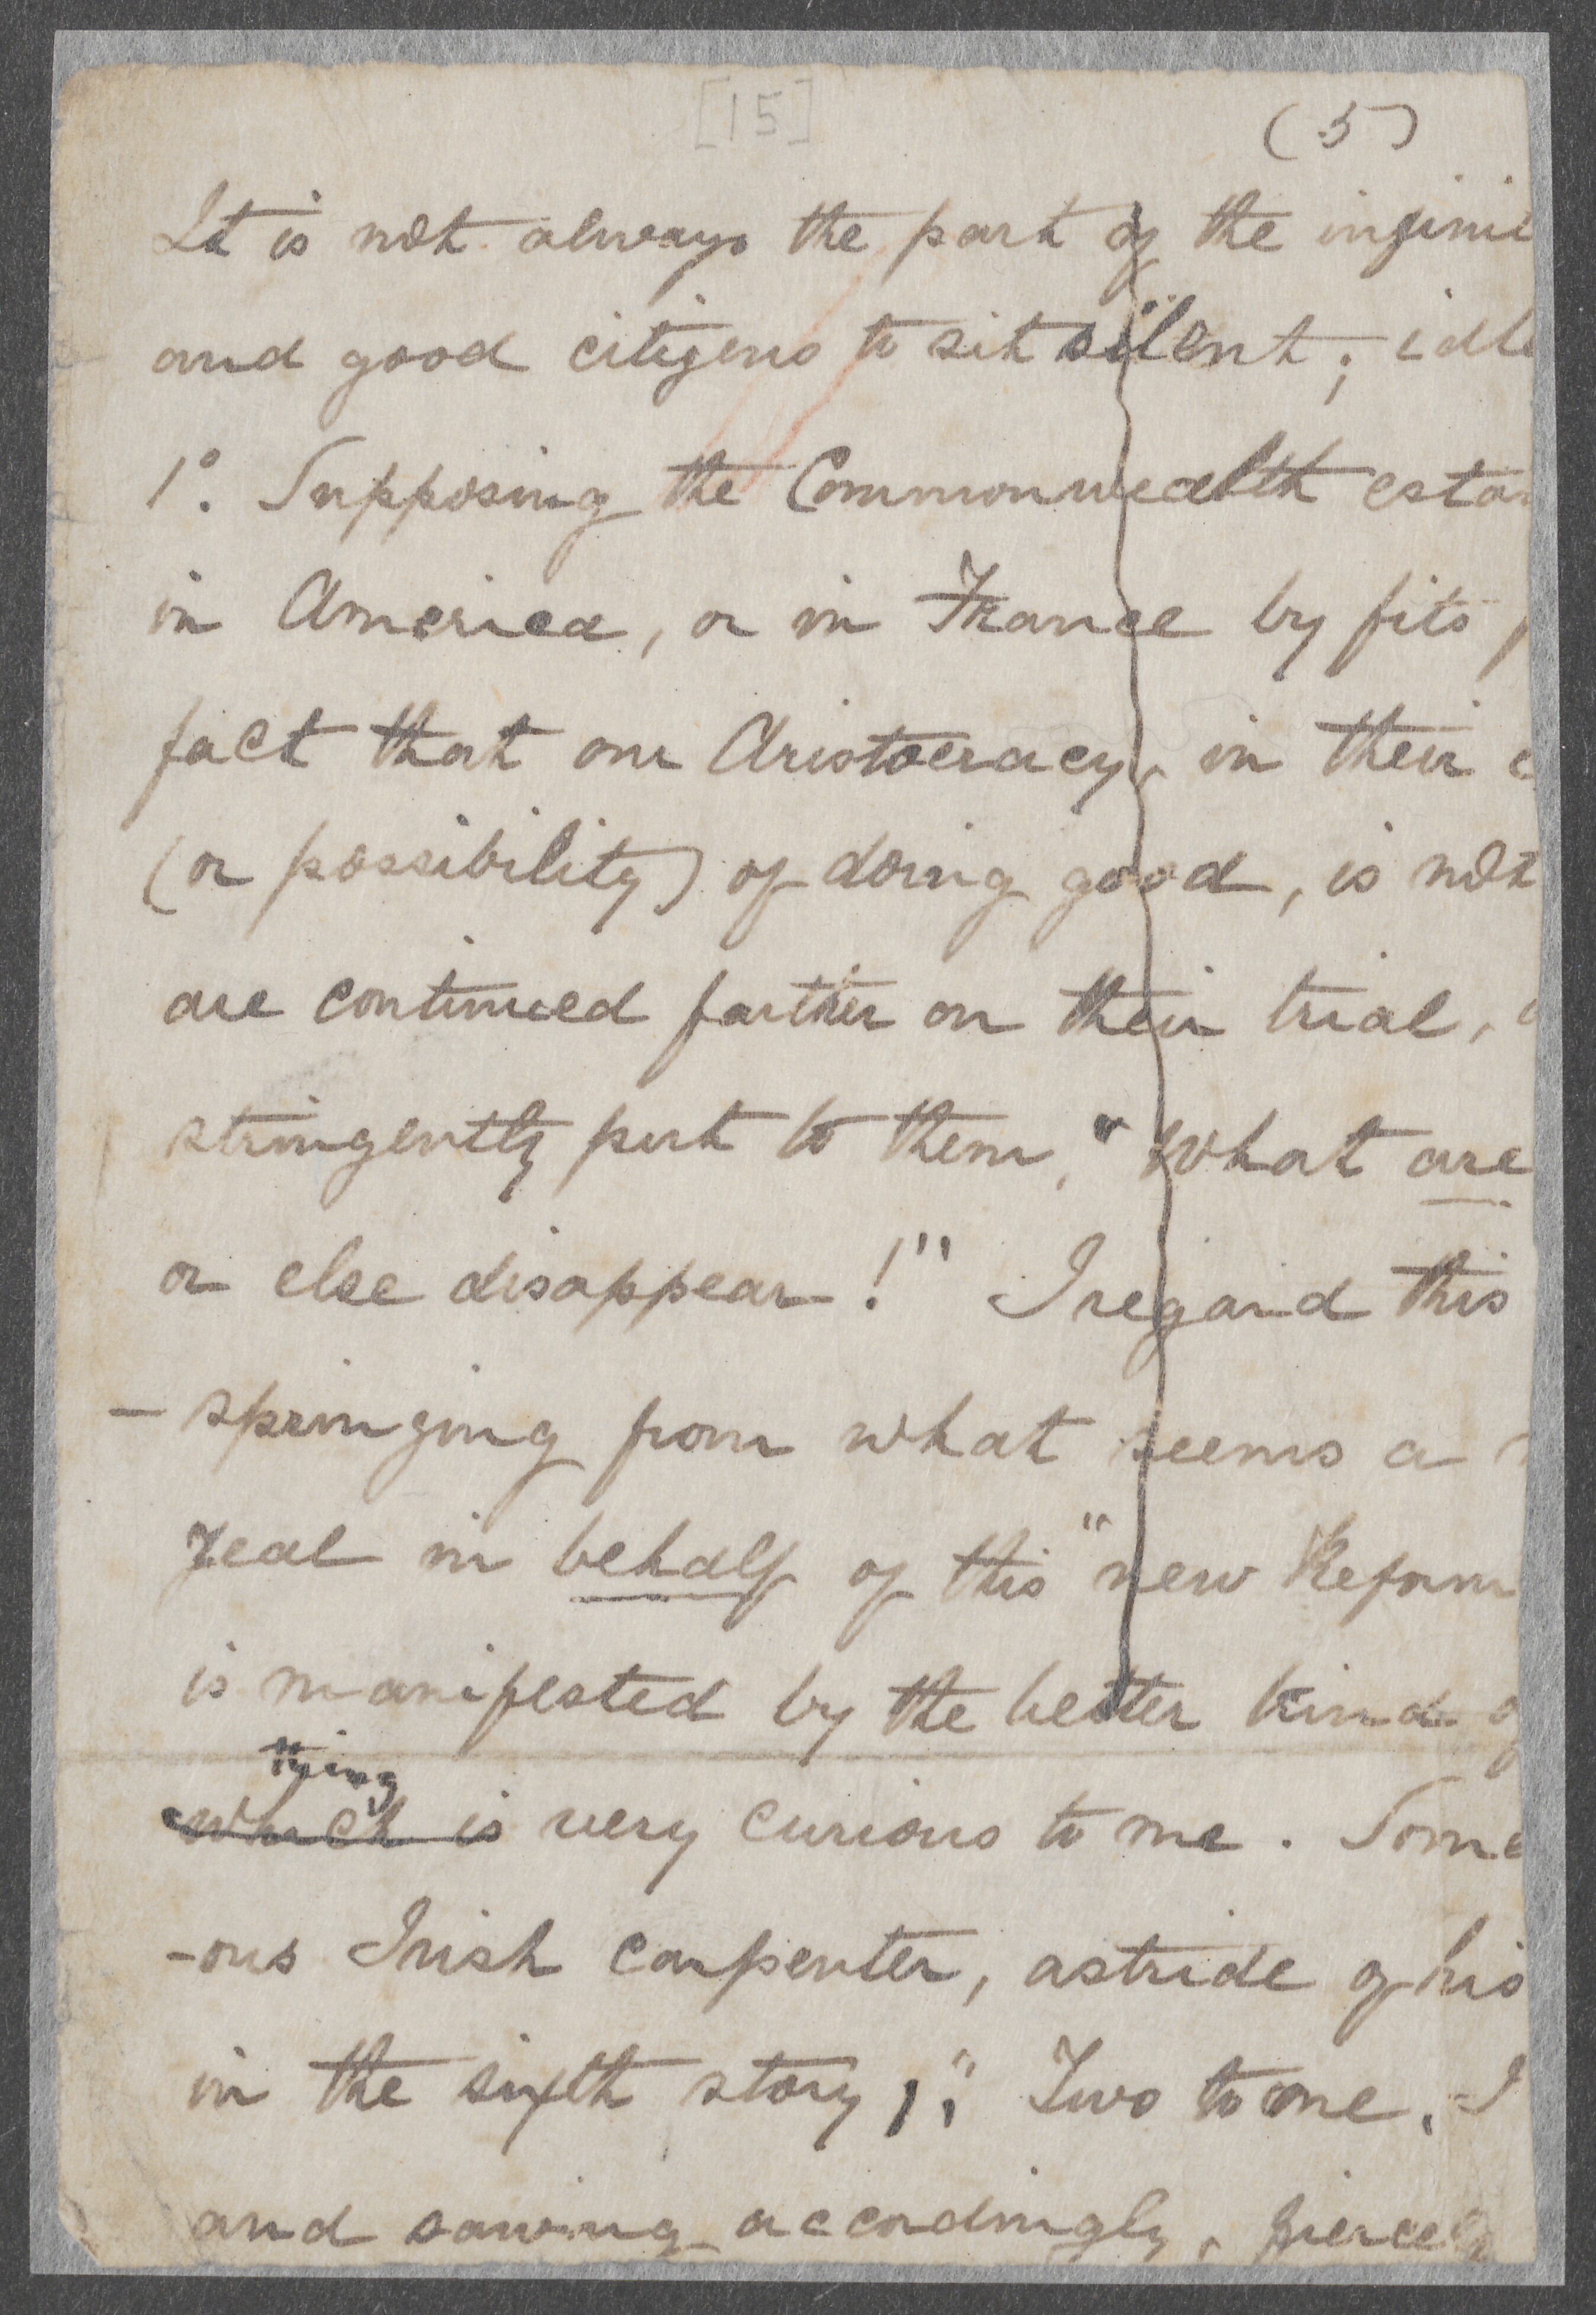 [15]
(5)
It is not always the part of the infini
and good citizens to sit silent; idle
1º. Supposing the Commonwealth esta
in America, or in France by fits
fact that our Aristocracy, in their
(or possibility) of doing good, is not
are continued farther on their trial,
stringently put to them, "What are
or else disappear!" I regard this
- springing from what seems a
zeal in behalf of this "new Reform
is manifested by the better kind
thing
which is very curious to me. Some
-ous Irish carpenter, astride of his
in the sixth story; "Two to one, I
and sawing accordingly, fiercely